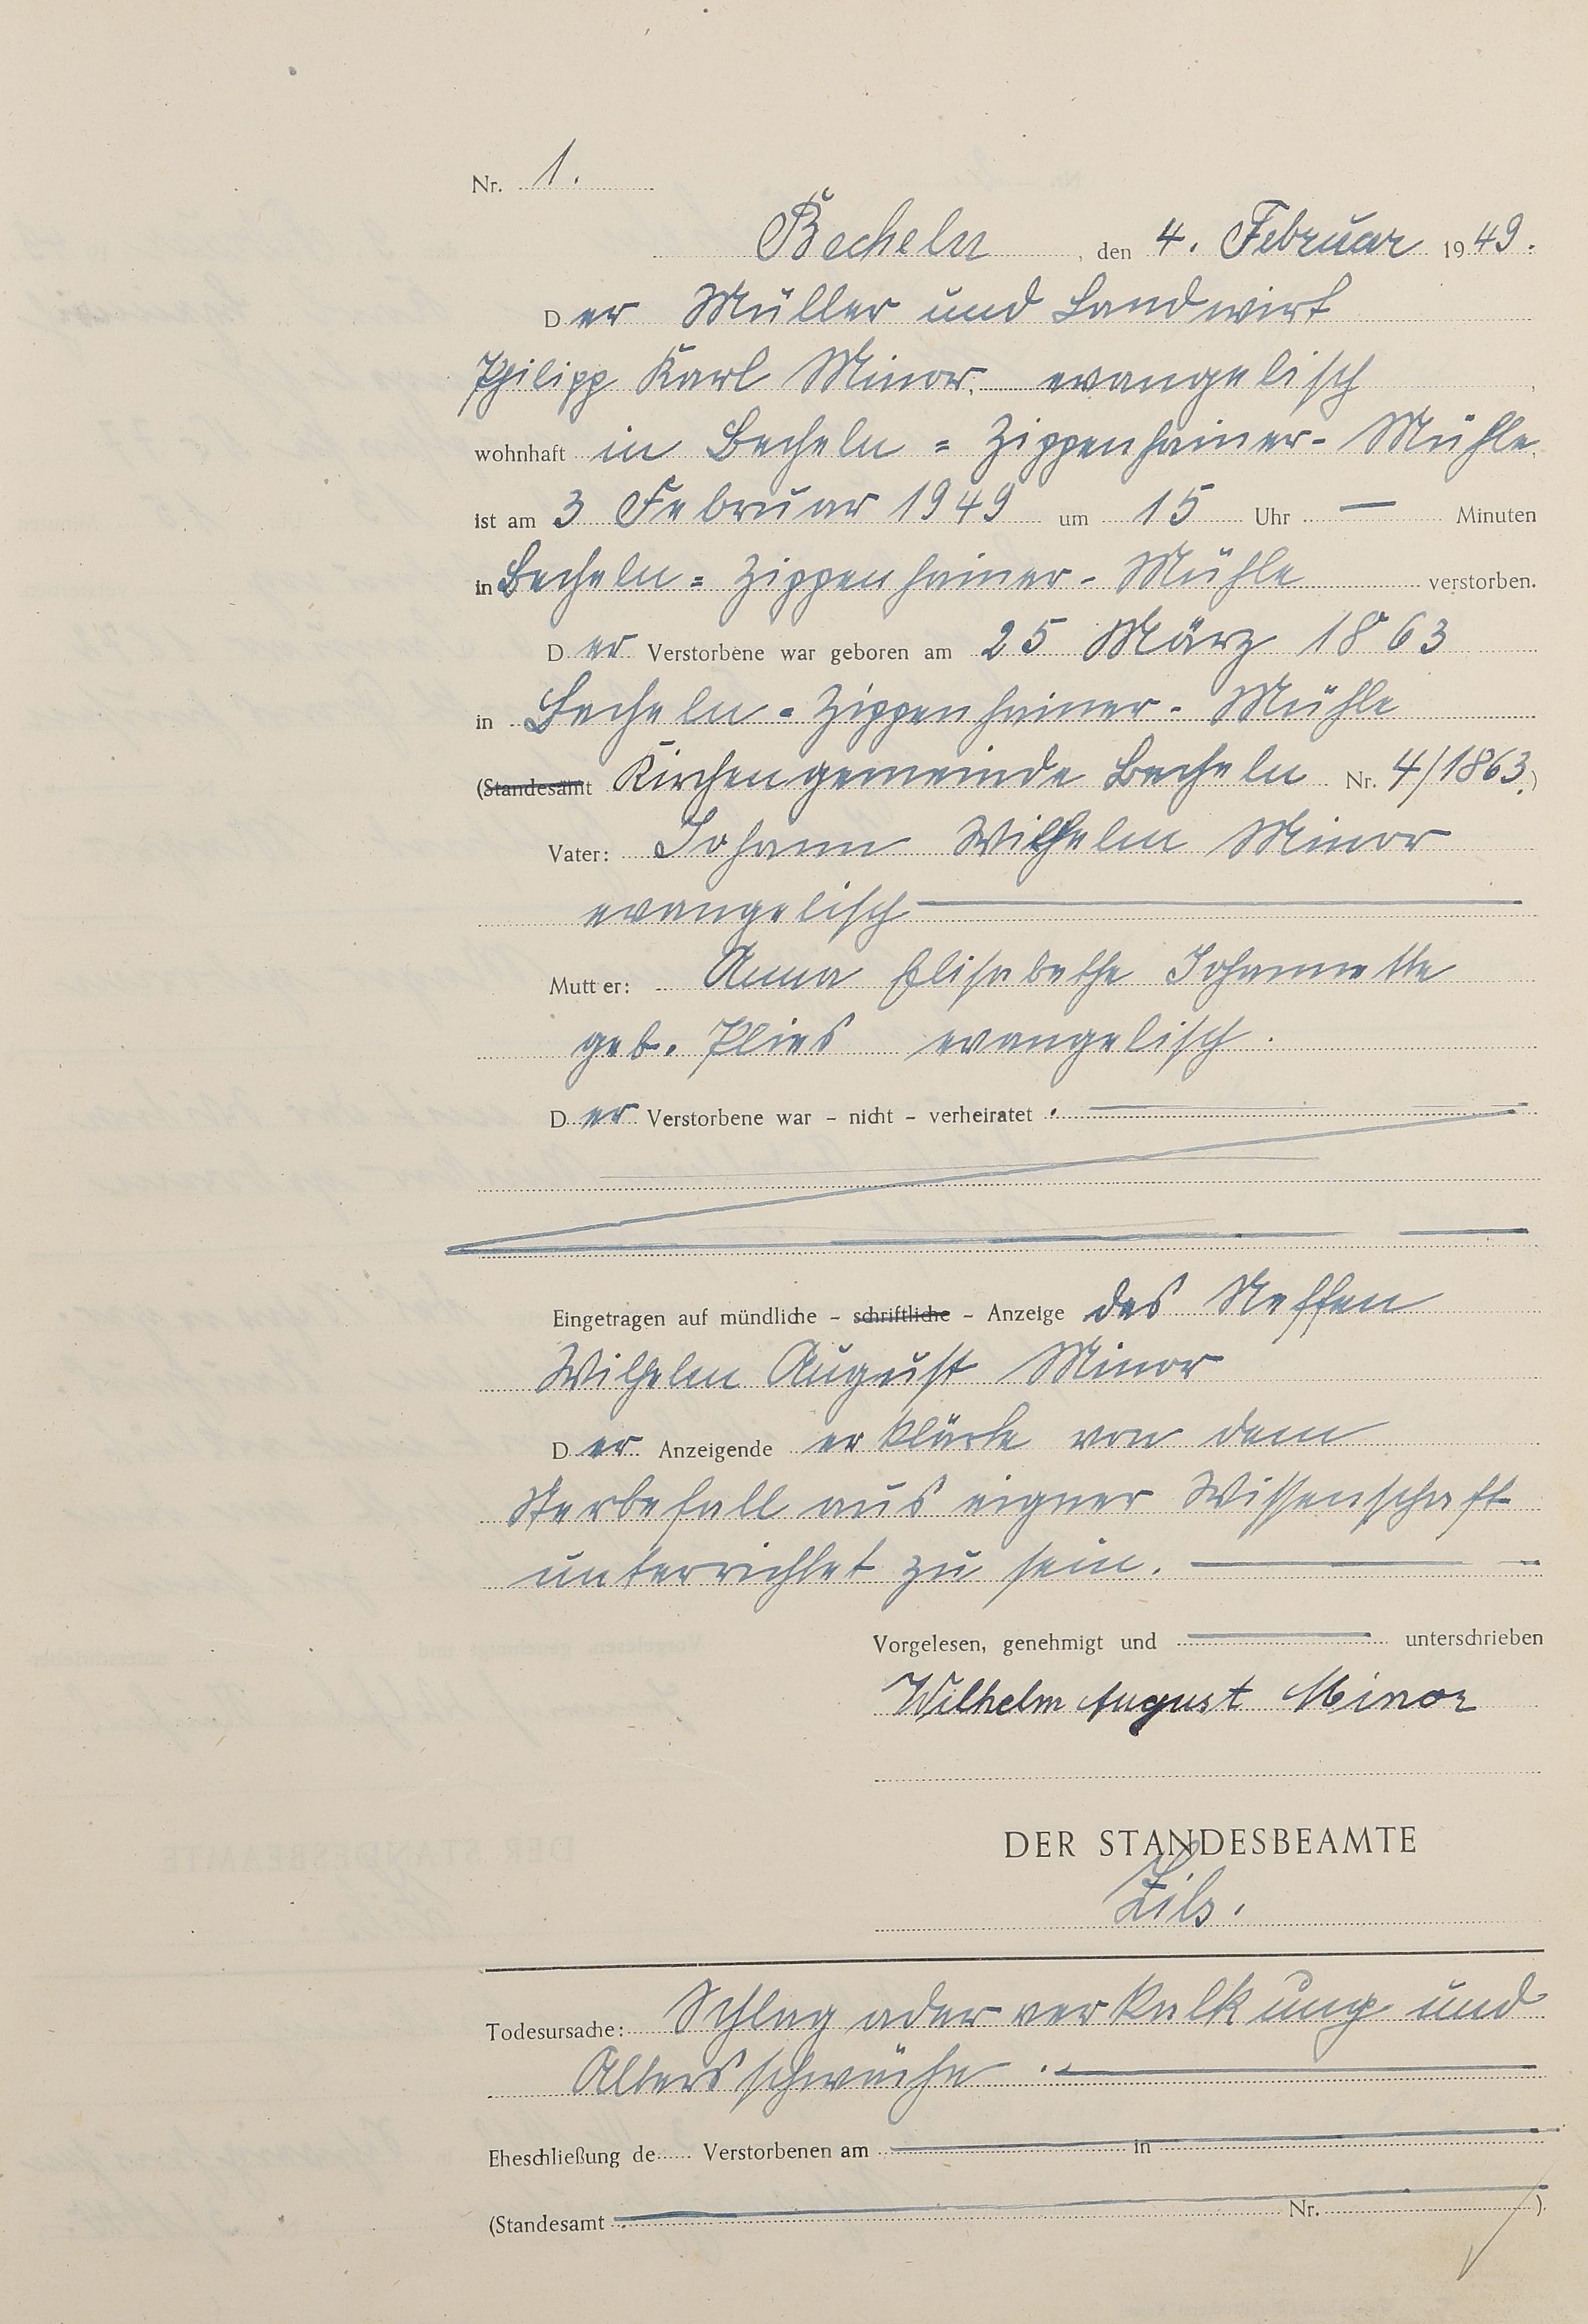 Nr. 1.
Becheln, den 4. Februar 1949.
Der Müller und Landwirt
Philipp Karl Minor, evangelisch
wohnhaft in Becheln = Zippenhainer- Mühle
ist am 3 Februar 1949 um 15 Uhr — Minuten
in Becheln = Zippenhainer- Mühle verstorben.
Der Verstorbene war geboren am 25 März 1863
in Becheln - Zippenhainer - Mühle
(Standesamt Kirchengemeinde Becheln Nr. 4/1863.)
Vater: Johann Wilhelm Minor
evangelisch
Mutter: Anna Elisabethe Johannette
geb. Plies evangelisch.
Der Verstorbene war - nicht - verheiratet.
Eingetragen auf mündliche - schriftliche - Anzeige des Neffen
Wilhelm August Minor
Der Anzeigende erklärte von dem
Sterbefall aus eigner Wissenschaft
unterrichtet zu sein.
Vorgelesen, genehmigt und — unterschrieben
Wilhelm August Minor
DER STANDESBEAMTE
Zils.
Todesursache: Schlagaderverkalkung und
Altersschwäche.
Eheschließung de Verstorbenen am in
(Standesamt Nr. )